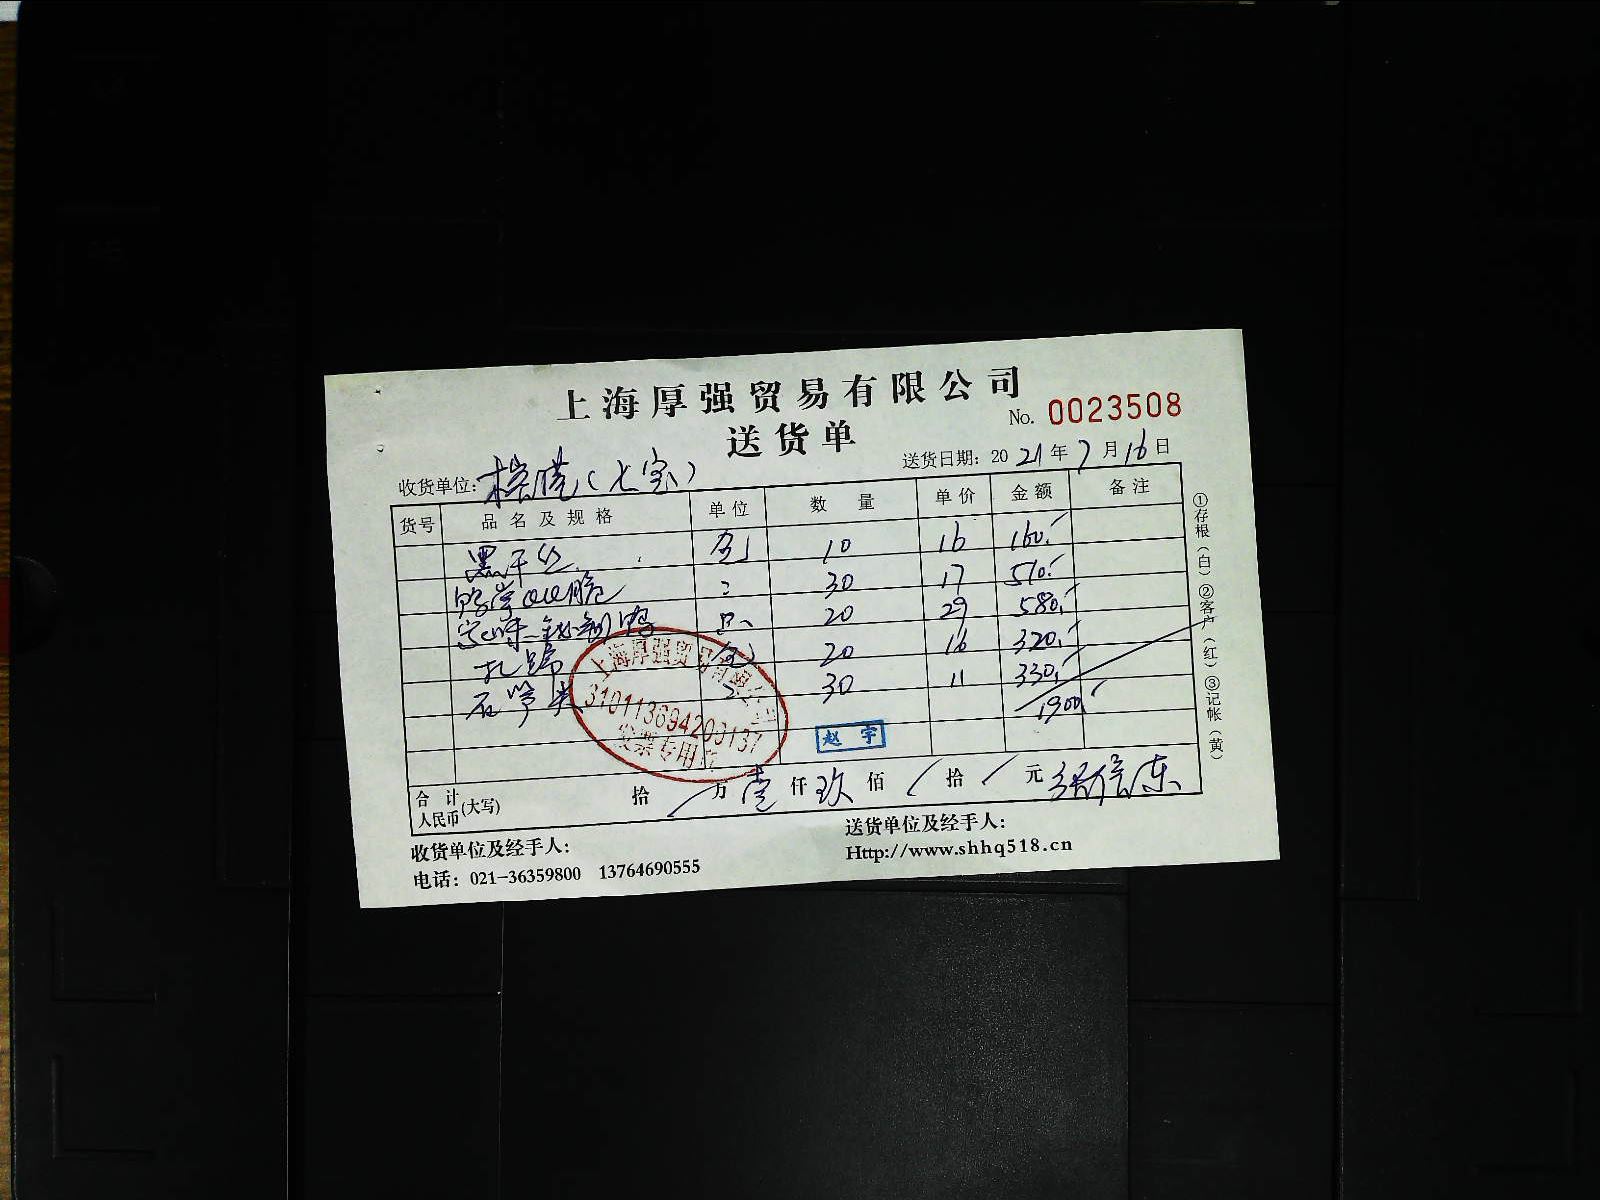 上海厚强贸易有限公司
送货单
No. 0023508
收货单位: (七宝)
送货日期: 2021年7月16日
货号 品名及规格 单位 数量 单价 金额 备注
黑干丝 10 16 160.-
30 17 510.-
只 20 29 580.-
20 16 320.-
石笋类 30 11 330.-
1900.-
上海厚强贸易有限公司
310113694200137
发票专用章
赵宇
合计人民币(大写) 拾 / 万 壹 仟 玖 佰 / 拾 / 元
收货单位及经手人:
送货单位及经手人:
电话: 021-36359800 13764690555
Http://www.shhq518.cn
①存根(白) ②客户(红) ③记帐(黄)